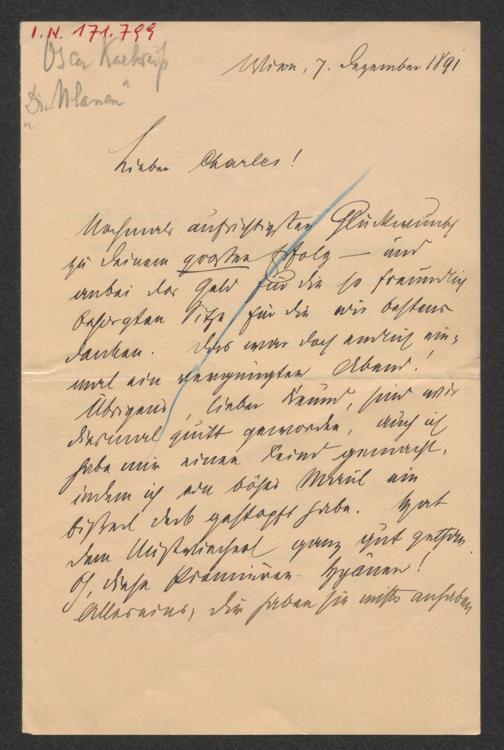 I.N. 171.799
Oscar
"Die Uhlanen"
Wien, 7. Dezember 1891
Lieber Charles!
Nochmals aufrichtigsten Glückwunsch
zu Deinem großen Erfolg — und
anbei das Geld für die so freundlich
besorgten Sitze für die wir bestens
danken. Das war doch endlich ein-
mal ein vergnügter Abend!
Übrigens, lieber Freund, sind wir
diesmal quitt geworden, auch ich
habe mir einen Feind gemacht,
indem ich ein böses Maul ein
bisserl derb gestopft habe. Hat
dem ganz gut gethan.
O, diese Premièren-Hyänen!
Alleseins, Dir haben sie nichts anhaben